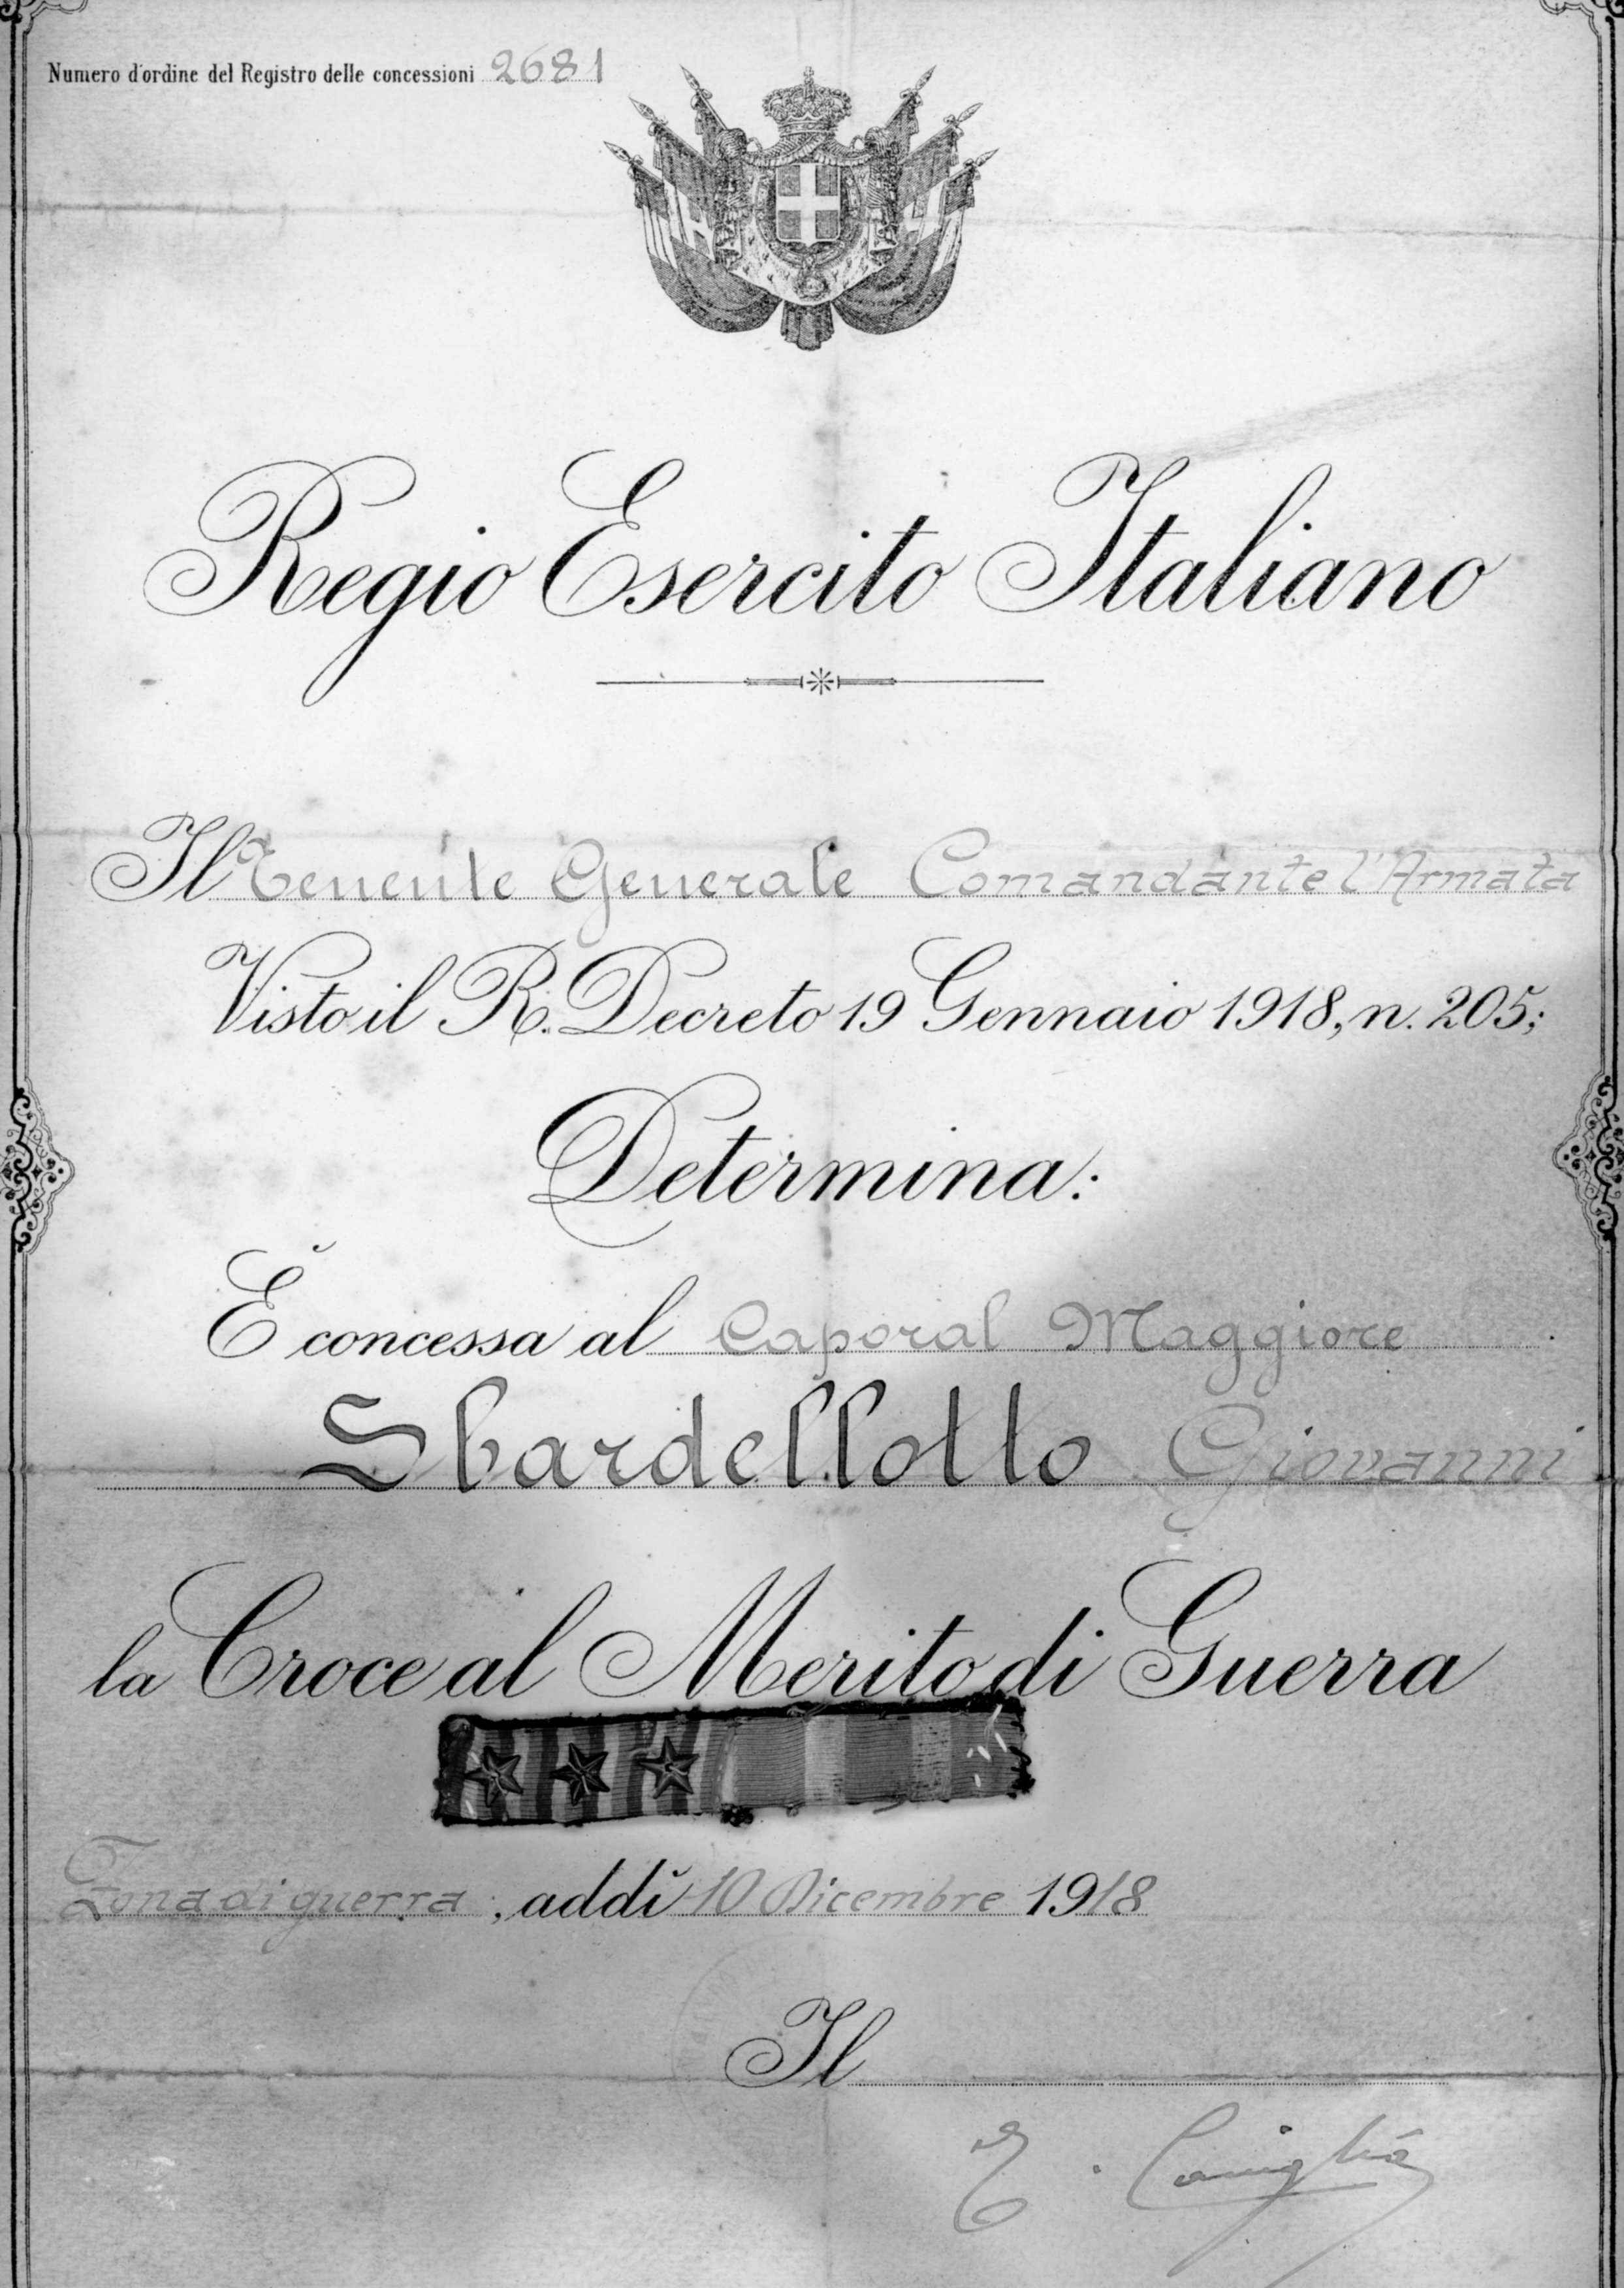 Numero d'ordine del Registro delle concessioni 2681
Regio Esercito Italiano
Il Tenente Generale Comandante l'Armata
Visto il R. Decreto 19 Gennaio 1918, n. 205;
Determina:
È concessa al Caporal Maggiore
Sbardellotto Giovanni
la Croce al Merito di Guerra
Zona di guerra, addì 10 Dicembre 1918
Il